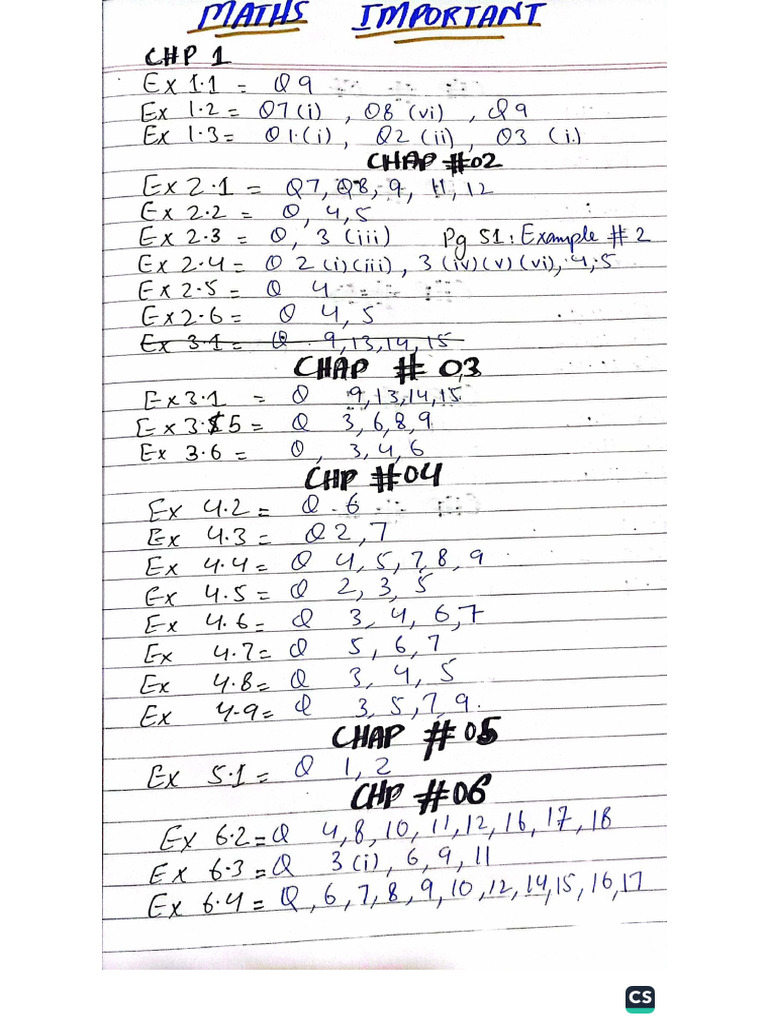 MATHS IMPORTANT
CHP 1
Ex 1.1 = Q9
Ex 1.2 = Q7(i), Q8(vi), Q9
Ex 1.3 = Q1.(i), Q2(ii), Q3 (i.)
CHAP #02
Ex 2.1 = Q7, Q8, 9, 11, 12
Ex 2.2 = Q, 4, 5
Ex 2.3 = Q, 3(iii) Pg 51: Example # 2
Ex 2.4 = Q 2(i)(iii), 3(iv)(v)(vi), 4, 5
Ex 2.5 = Q 4
Ex 2.6 = Q 4, 5
Ex 3.1 = Q. 9, 13, 14, 15
CHAP # 03
Ex 3.1 = Q 9, 13, 14, 15
Ex 3.5 = Q 3, 6, 8, 9
Ex 3.6 = Q, 3, 4, 6
CHP #04
Ex 4.2 = Q. 6
Ex 4.3 = Q 2, 7
Ex 4.4 = Q 4, 5, 7, 8, 9
Ex 4.5 = Q 2, 3, 5
Ex 4.6 = Q 3, 4, 6, 7
Ex 4.7 = Q 5, 6, 7
Ex 4.8 = Q 3, 4, 5
Ex 4.9 = Q 3, 5, 7, 9.
CHAP # 05
Ex 5.1 = Q 1, 2
CHP #06
Ex 6.2 = Q 4, 8, 10, 11, 12, 16, 17, 18
Ex 6.3 = Q 3(i), 6, 9, 11
Ex 6.4 = Q, 6, 7, 8, 9, 10, 12, 14, 15, 16, 17
CS